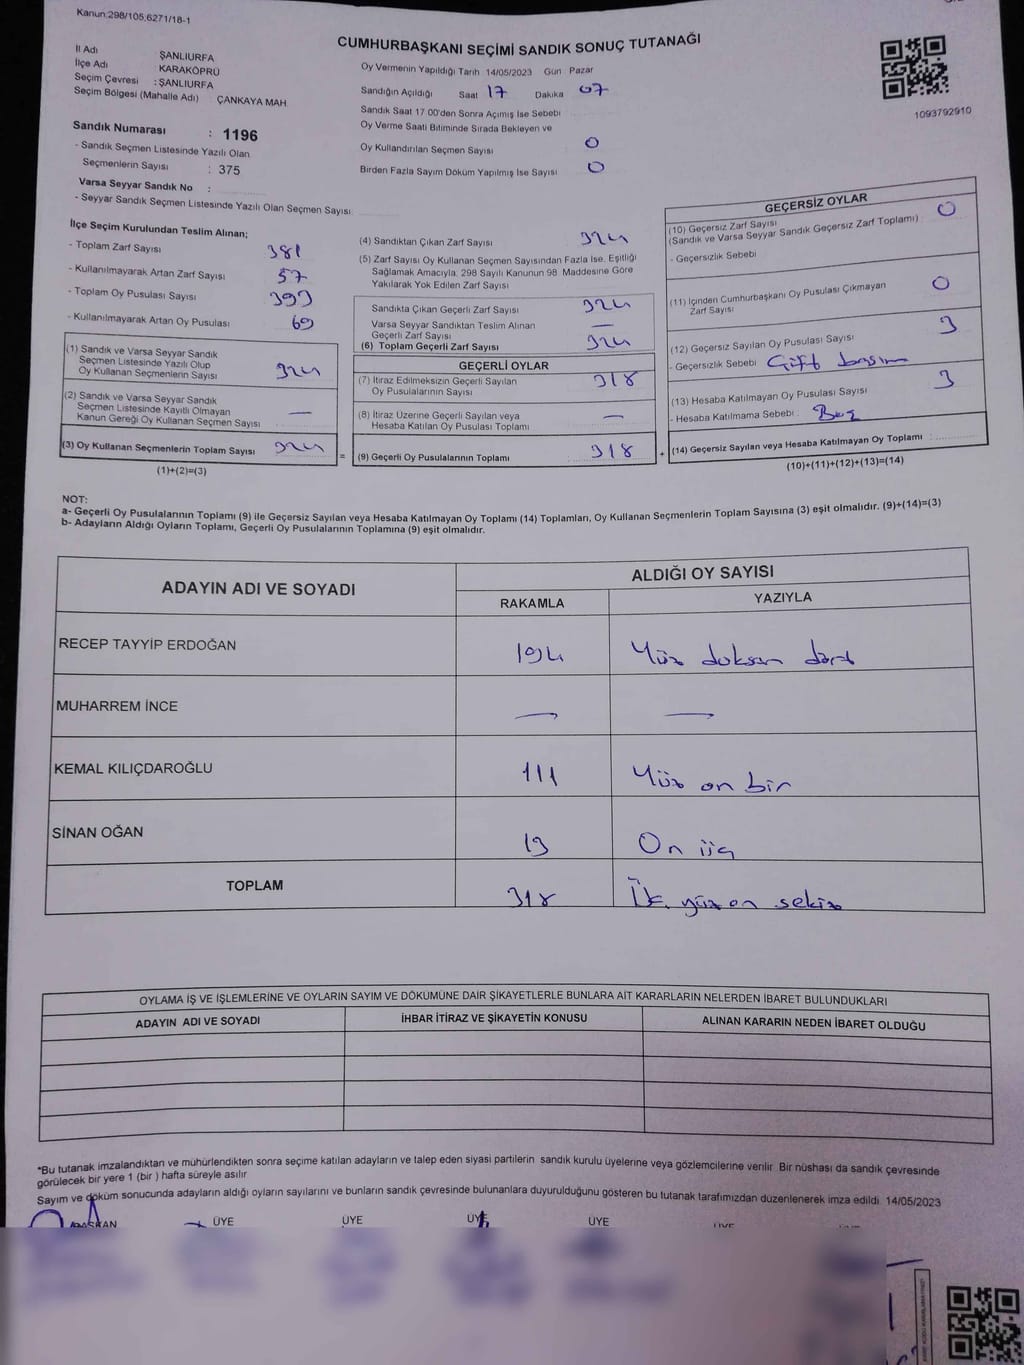 Kanun:298/105,6271/18-1
CUMHURBAŞKANI SEÇİMİ SANDIK SONUÇ TUTANAĞI
İl Adı ŞANLIURFA
İlçe Adı KARAKÖPRÜ
Seçim Çevresi : ŞANLIURFA
Seçim Bölgesi (Mahalle Adı) ÇANKAYA MAH
Sandık Numarası : 1196
- Sandık Seçmen Listesinde Yazılı Olan
Seçmenlerin Sayısı : 375
Varsa Seyyar Sandık No :
- Seyyar Sandık Seçmen Listesinde Yazılı Olan Seçmen Sayısı
Oy Vermenin Yapıldığı Tarih 14/05/2023 Gün Pazar
Sandığın Açıldığı Saat 17 Dakika 07
Sandık Saat 17.00'den Sonra Açımış İse Sebebi
Oy Verme Saati Bitiminde Sırada Bekleyen ve
Oy Kullandırılan Seçmen Sayısı 0
Birden Fazla Sayım Döküm Yapılmış İse Sayısı 0
1093792910
İlçe Seçim Kurulundan Teslim Alınan;
- Toplam Zarf Sayısı 381
- Kullanılmayarak Artan Zarf Sayısı 57
- Toplam Oy Pusulası Sayısı 393
- Kullanılmayarak Artan Oy Pusulası 69
(1) Sandık ve Varsa Seyyar Sandık
Seçmen Listesinde Yazılı Olup
Oy Kullanan Seçmenlerin Sayısı 324
(2) Sandık ve Varsa Seyyar Sandık
Seçmen Listesinde Kayıtlı Olmayan
Kanun Gereği Oy Kullanan Seçmen Sayısı —
(3) Oy Kullanan Seçmenlerin Toplam Sayısı 324 =
(1)+(2)=(3)
(4) Sandıktan Çıkan Zarf Sayısı 324
(5) Zarf Sayısı Oy Kullanan Seçmen Sayısından Fazla İse, Eşitliği
Sağlamak Amacıyla, 298 Sayılı Kanunun 98. Maddesine Göre
Yakılarak Yok Edilen Zarf Sayısı
Sandıkta Çıkan Geçerli Zarf Sayısı 324
Varsa Seyyar Sandıktan Teslim Alınan
Geçerli Zarf Sayısı —
(6) Toplam Geçerli Zarf Sayısı 324
GEÇERLİ OYLAR
(7) İtiraz Edilmeksizin Geçerli Sayılan
Oy Pusulalarının Sayısı 318
(8) İtiraz Üzerine Geçerli Sayılan veya
Hesaba Katılan Oy Pusulası Toplamı —
(9) Geçerli Oy Pusulalarının Toplamı 318 +
GEÇERSİZ OYLAR
(10) Geçersiz Zarf Sayısı 0
(Sandık ve Varsa Seyyar Sandık Geçersiz Zarf Toplamı)
- Geçersizlik Sebebi
(11) İçinden Cumhurbaşkanı Oy Pusulası Çıkmayan
Zarf Sayısı 0
(12) Geçersiz Sayılan Oy Pusulası Sayısı 3
- Geçersizlik Sebebi Çift basım
(13) Hesaba Katılmayan Oy Pusulası Sayısı 3
- Hesaba Katılmama Sebebi : Boş
(14) Geçersiz Sayılan veya Hesaba Katılmayan Oy Toplamı :
(10)+(11)+(12)+(13)=(14)
NOT:
a- Geçerli Oy Pusulalarının Toplamı (9) ile Geçersiz Sayılan veya Hesaba Katılmayan Oy Toplamı (14) Toplamları, Oy Kullanan Seçmenlerin Toplam Sayısına (3) eşit olmalıdır. (9)+(14)=(3)
b- Adayların Aldığı Oyların Toplamı, Geçerli Oy Pusulalarının Toplamına (9) eşit olmalıdır.
ADAYIN ADI VE SOYADI ALDIĞI OY SAYISI
RAKAMLA YAZIYLA
RECEP TAYYİP ERDOĞAN 194 Yüz doksan dört
MUHARREM İNCE — —
KEMAL KILIÇDAROĞLU 111 Yüz on bir
SİNAN OĞAN 13 On üç
TOPLAM 318 yüz on sekiz
OYLAMA İŞ VE İŞLEMLERİNE VE OYLARIN SAYIM VE DÖKÜMÜNE DAİR ŞİKAYETLERLE BUNLARA AİT KARARLARIN NELERDEN İBARET BULUNDUKLARI
ADAYIN ADI VE SOYADI İHBAR İTİRAZ VE ŞİKAYETİN KONUSU ALINAN KARARIN NEDEN İBARET OLDUĞU
*Bu tutanak imzalandıktan ve mühürlendikten sonra seçime katılan adayların ve talep eden siyasi partilerin sandık kurulu üyelerine veya gözlemcilerine verilir Bir nüshası da sandık çevresinde
görülecek bir yere 1 (bir ) hafta süreyle asılır
Sayım ve döküm sonucunda adayların aldığı oyların sayılarını ve bunların sandık çevresinde bulunanlara duyurulduğunu gösteren bu tutanak tarafımızdan düzenlenerek imza edildi 14/05/2023
BAŞKAN ÜYE ÜYE ÜYE ÜYE ÜYE ÜYE